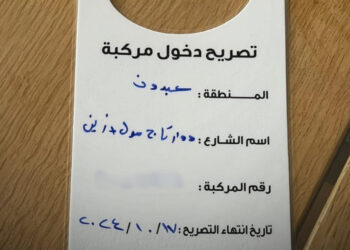 تصريح دخول مركبة
المنطقة : عبدون
اسم الشارع : دوار تاج مول وزين
رقم المركبة :
تاريخ انتهاء التصريح : ٢٠٢٤/١٠/١٧